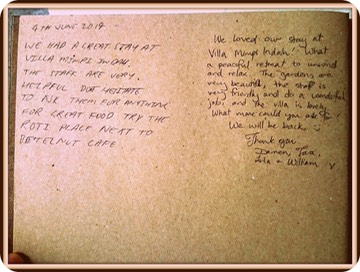 4TH JUNE 2019 -
WE HAD A GREAT STAY AT
VILLA MIMPI INDAH.
THE STAFF ARE VERY
HELPFUL DON'T HESITATE
TO ASK THEM FOR ANYTHING
FOR GREAT FOOD TRY THE
ROTI PLACE NEXT TO
BETELNUT CAFE
We loved our stay at
Villa Mimpi Indah. What
a peaceful retreat to unwind
and relax. The gardens are
very beautiful, the staff is
very friendly and do a wonderful
job, and the villa is lovely.
What more could you ask for
We will be back
Thank you
Darren,
Lola & William